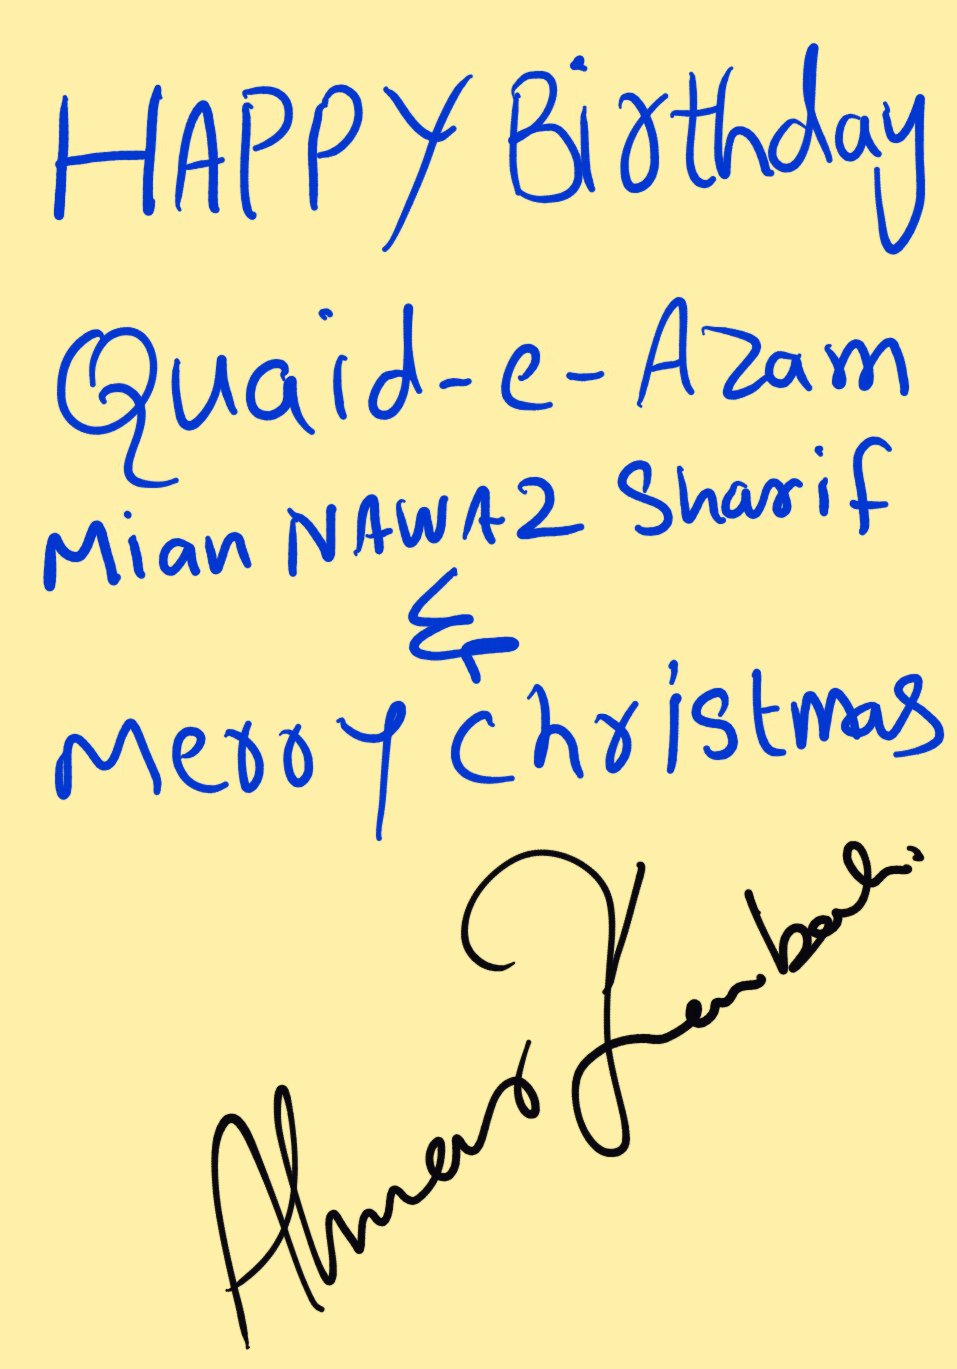 HAPPY Birthday
Quaid-e-Azam
Mian NAWAZ Sharif
&
Merry Christmas